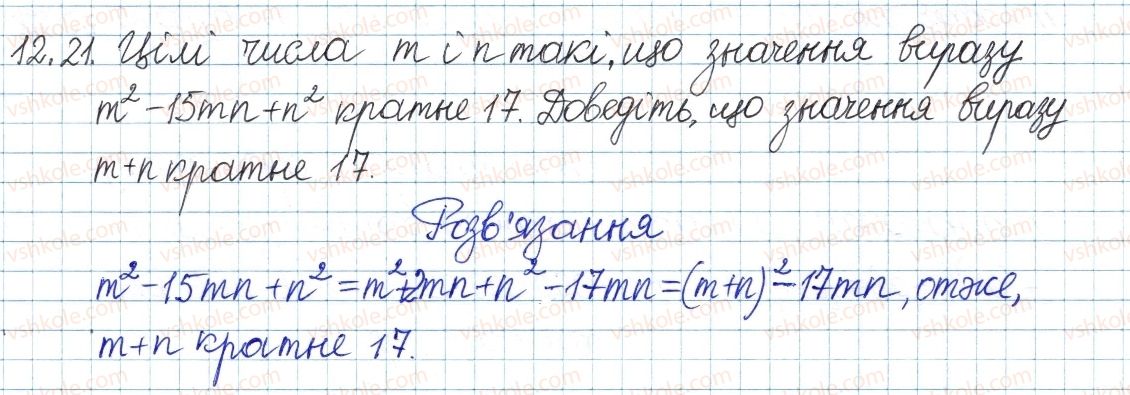 12.21. Цілі числа m і n такі, що значення виразу
m² - 15mn + n² кратне 17. Доведіть, що значення виразу
m + n кратне 17.
Розв'язання
m² - 15mn + n² = m² + 2mn + n² - 17mn = (m + n)² - 17mn, отже,
m + n кратне 17.